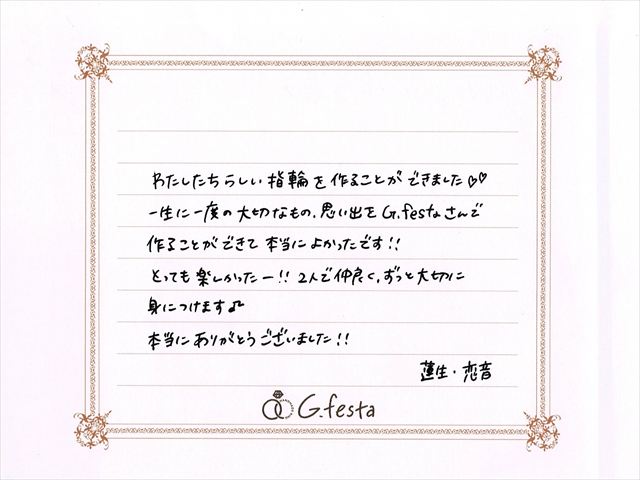 わたしたちらしい指輪を作ることができました♡♡
一生に一度の大切なもの、思い出をG.festaさんで
作ることができて本当によかったです!!
とっても楽しかったー!! 2人で仲良く、ずっと大切に
身につけます♪
本当にありがとうございました!!
蓮生・恋音
G.festa